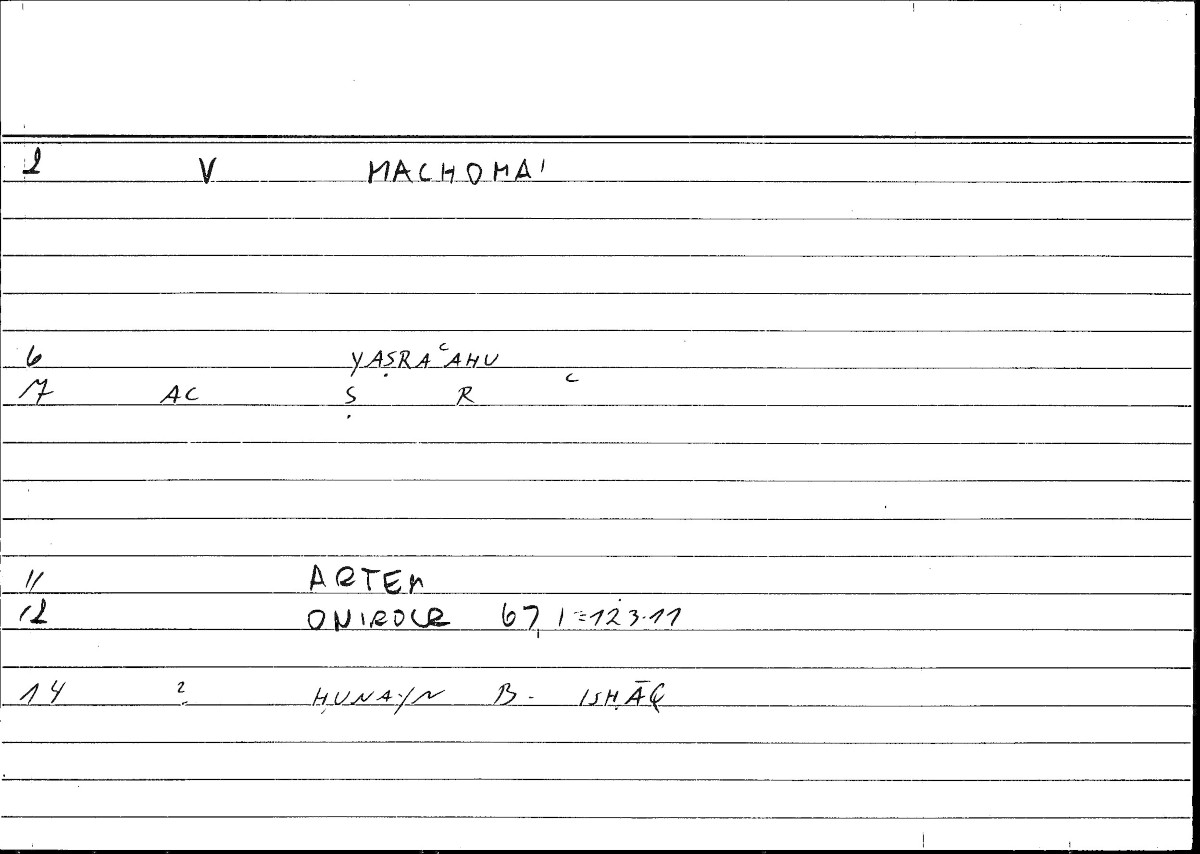 2 V MACHOMAI
6 YAṢRAᶜAHU
7 AC Ṣ R ᶜ
11 ARTEM
12 ONIROCR 67, 1 = 123.11
14 ? ḤUNAYN B. ISḤĀQ